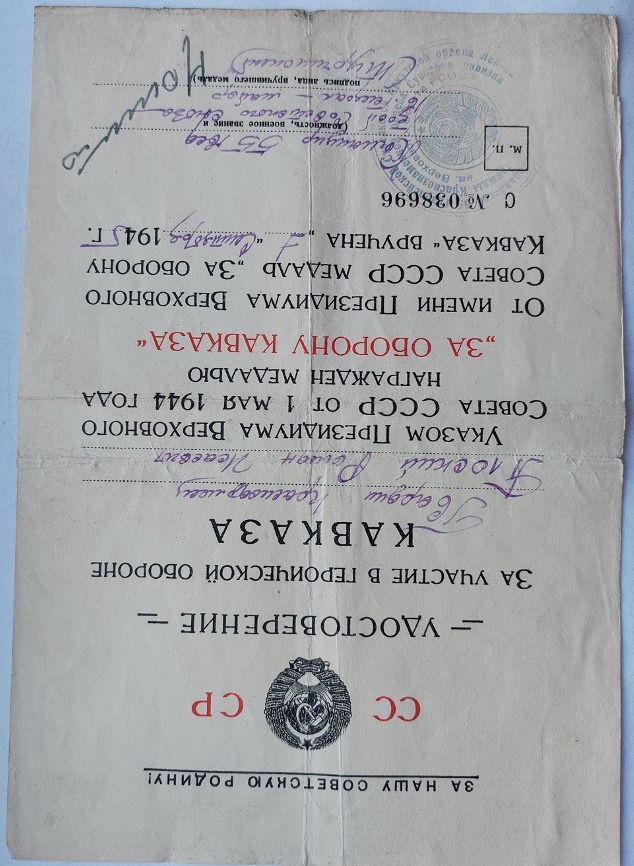 ЗА НАШУ СОВЕТСКУЮ РОДИНУ!
СС СР
УДОСТОВЕРЕНИЕ
ЗА УЧАСТИЕ В ГЕРОИЧЕСКОЙ ОБОРОНЕ
КАВКАЗА
Гвардии Красноармеец
Плоский Роман Исаевич
УКАЗОМ ПРЕЗИДИУМА ВЕРХОВНОГО
СОВЕТА СССР ОТ 1 МАЯ 1944 ГОДА
НАГРАЖДЕН МЕДАЛЬЮ
„ЗА ОБОРОНУ КАВКАЗА“
ОТ ИМЕНИ ПРЕЗИДИУМА ВЕРХОВНОГО
СОВЕТА СССР МЕДАЛЬ „ЗА ОБОРОНУ
КАВКАЗА“ ВРУЧЕНА „7“ Сентября 1945 Г.
С № 038696
М. П.
Командир 55
(должность, военное звание и
Герой Советского Союза
Гв. генерал-майор
подпись лица, вручившего медаль)